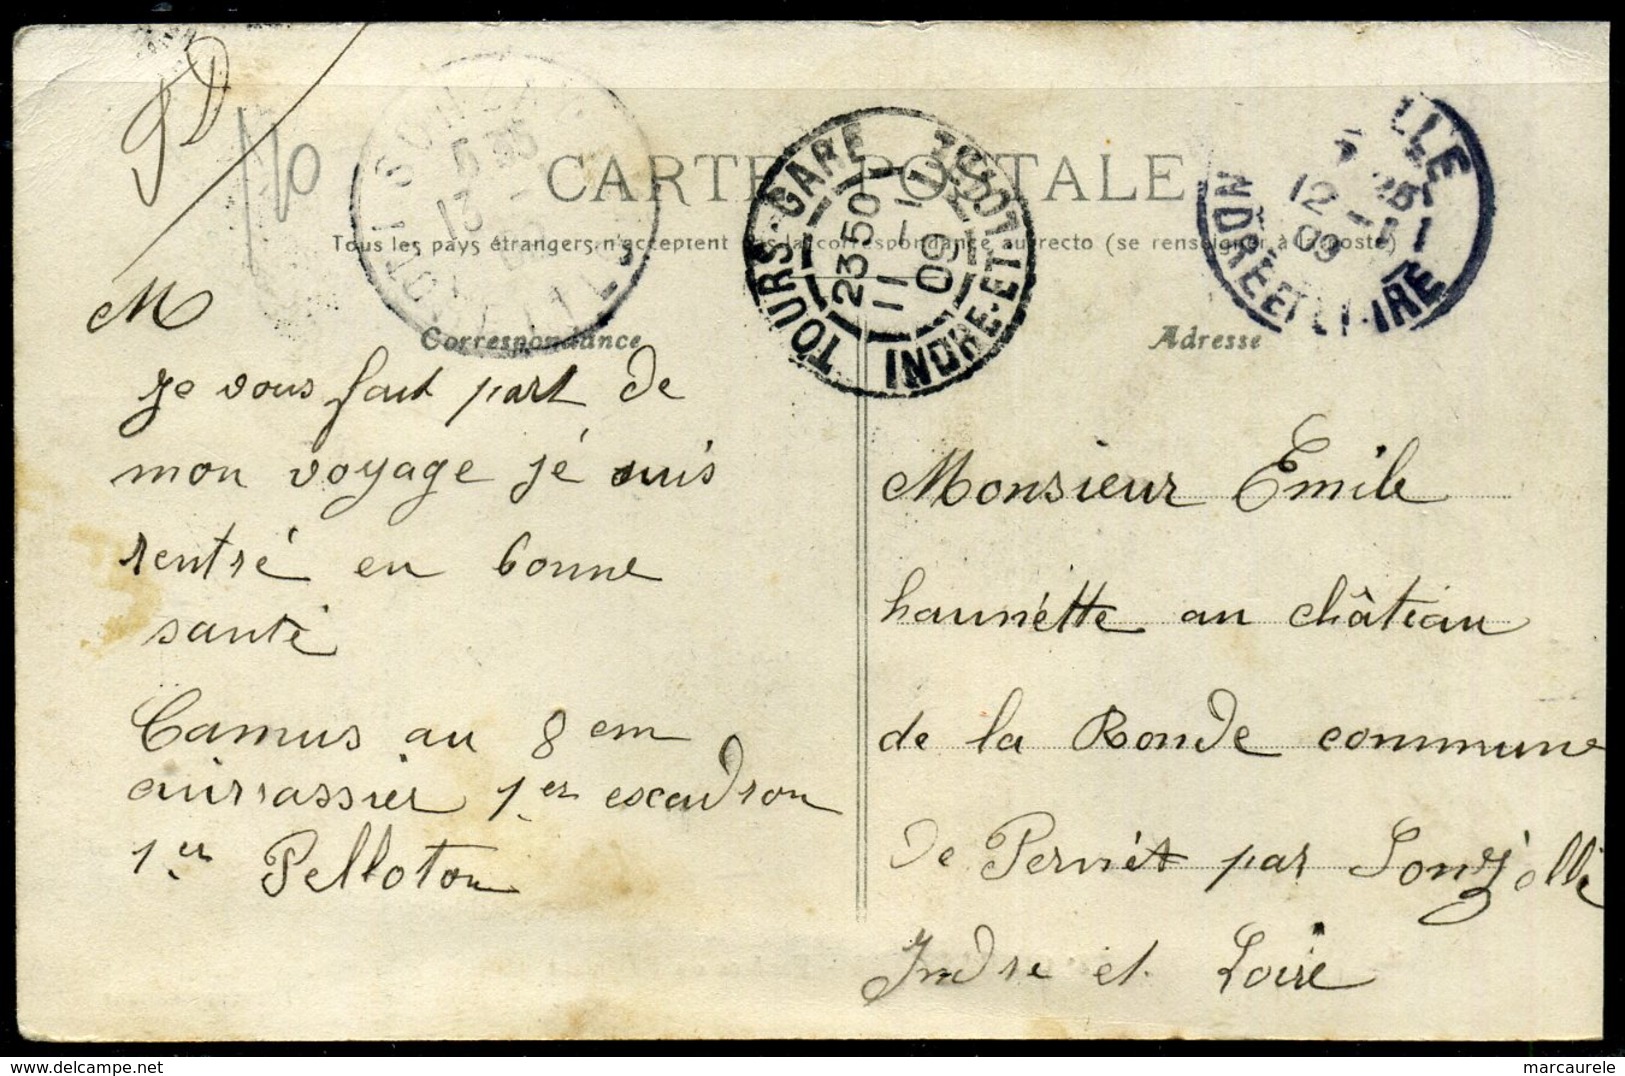 JD
CARTE POSTALE
Tous les pays étrangers n'acceptent pas la correspondance au recto (se renseigner à la poste)
TOURS-GARE
23 50
11 - 1
09
INDRE-ET-LOIRE
12 - 1
09
INDRE ET LOIRE
Correspondance
Adresse
M
je vous fait part de
mon voyage jé suis
rentré en bonne
santé
Camus au 8 em
cuirrassier 1er escadron
1er Pelloton
Monsieur Emile
haunétte au château
de la Ronde commune
de Pernét par Sonzollé
Indre et Loire
marcaurele